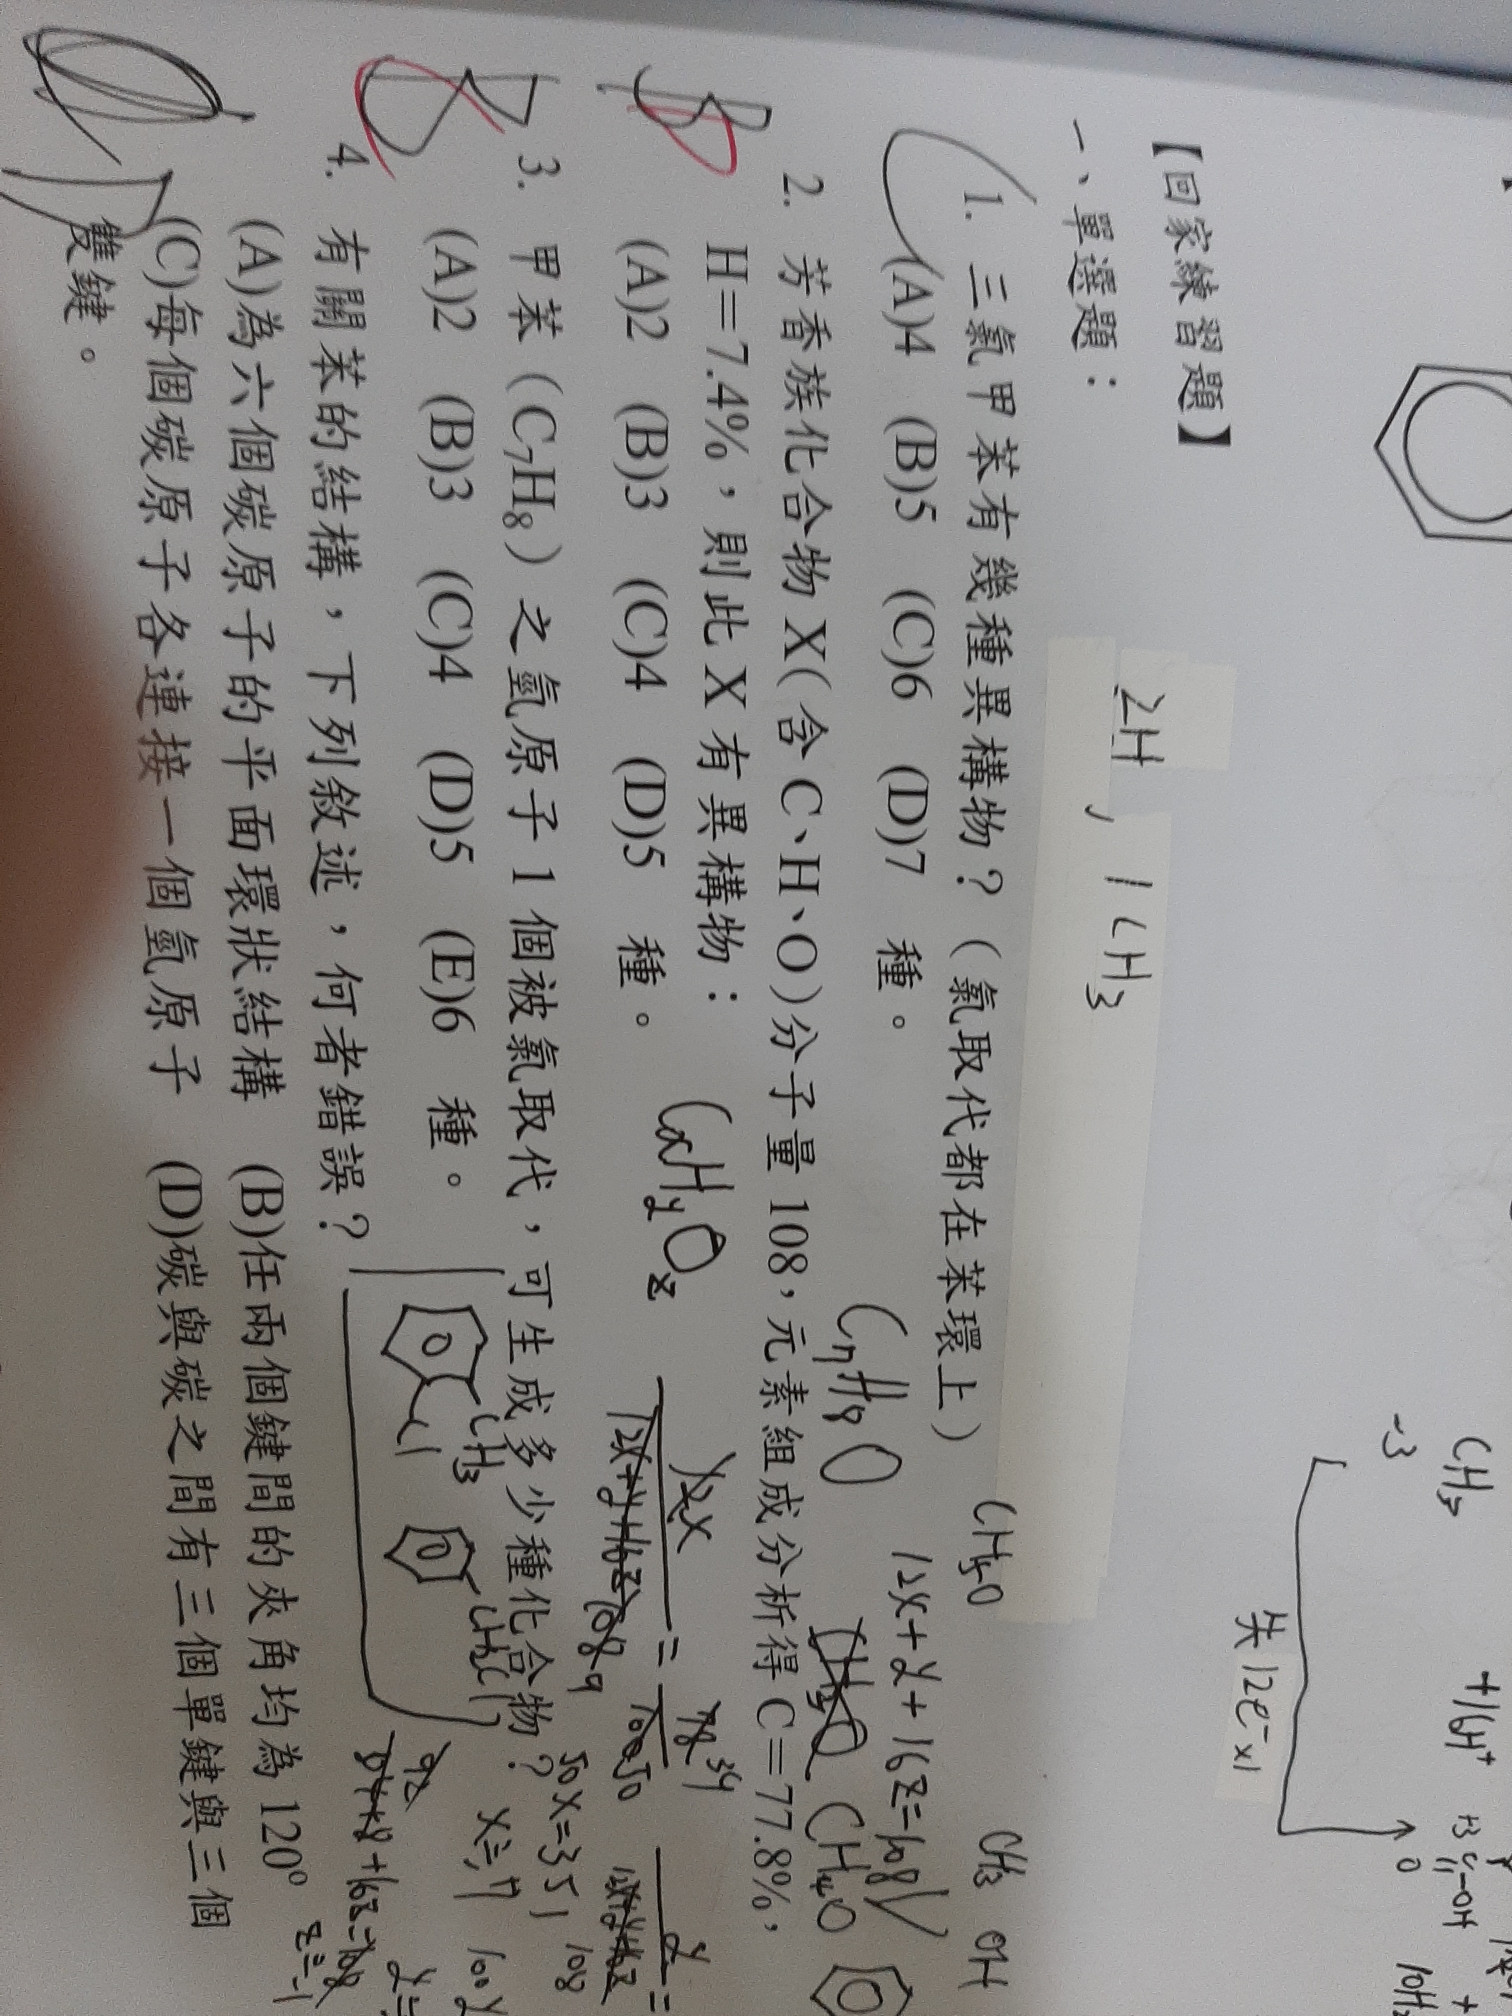 【回家練習題】
一、單選題：
2H , 1CH3
1. 三氯甲苯有幾種異構物？（氯取代都在苯環上）
(A)4 (B)5 (C)6 (D)7 種。
2. 芳香族化合物X(含C、H、O)分子量108，元素組成分析得C＝77.8%，
H＝7.4%，則此X有異構物：
(A)2 (B)3 (C)4 (D)5 種。
3. 甲苯（C7H8）之氫原子1個被氯取代，可生成多少種化合物？
(A)2 (B)3 (C)4 (D)5 (E)6 種。
4. 有關苯的結構，下列敘述，何者錯誤？
(A)為六個碳原子的平面環狀結構 (B)任兩個鍵間的夾角均為120°
(C)每個碳原子各連接一個氫原子 (D)碳與碳之間有三個單鍵與三個
雙鍵。
CH3
-3
失12e⁻x1
C7H8O
12x+y+16z=108
CH4O
CH3 OH
CxHyOz
12x
50x=351
x≒7
CH3
Cl
CH2Cl
z≒1